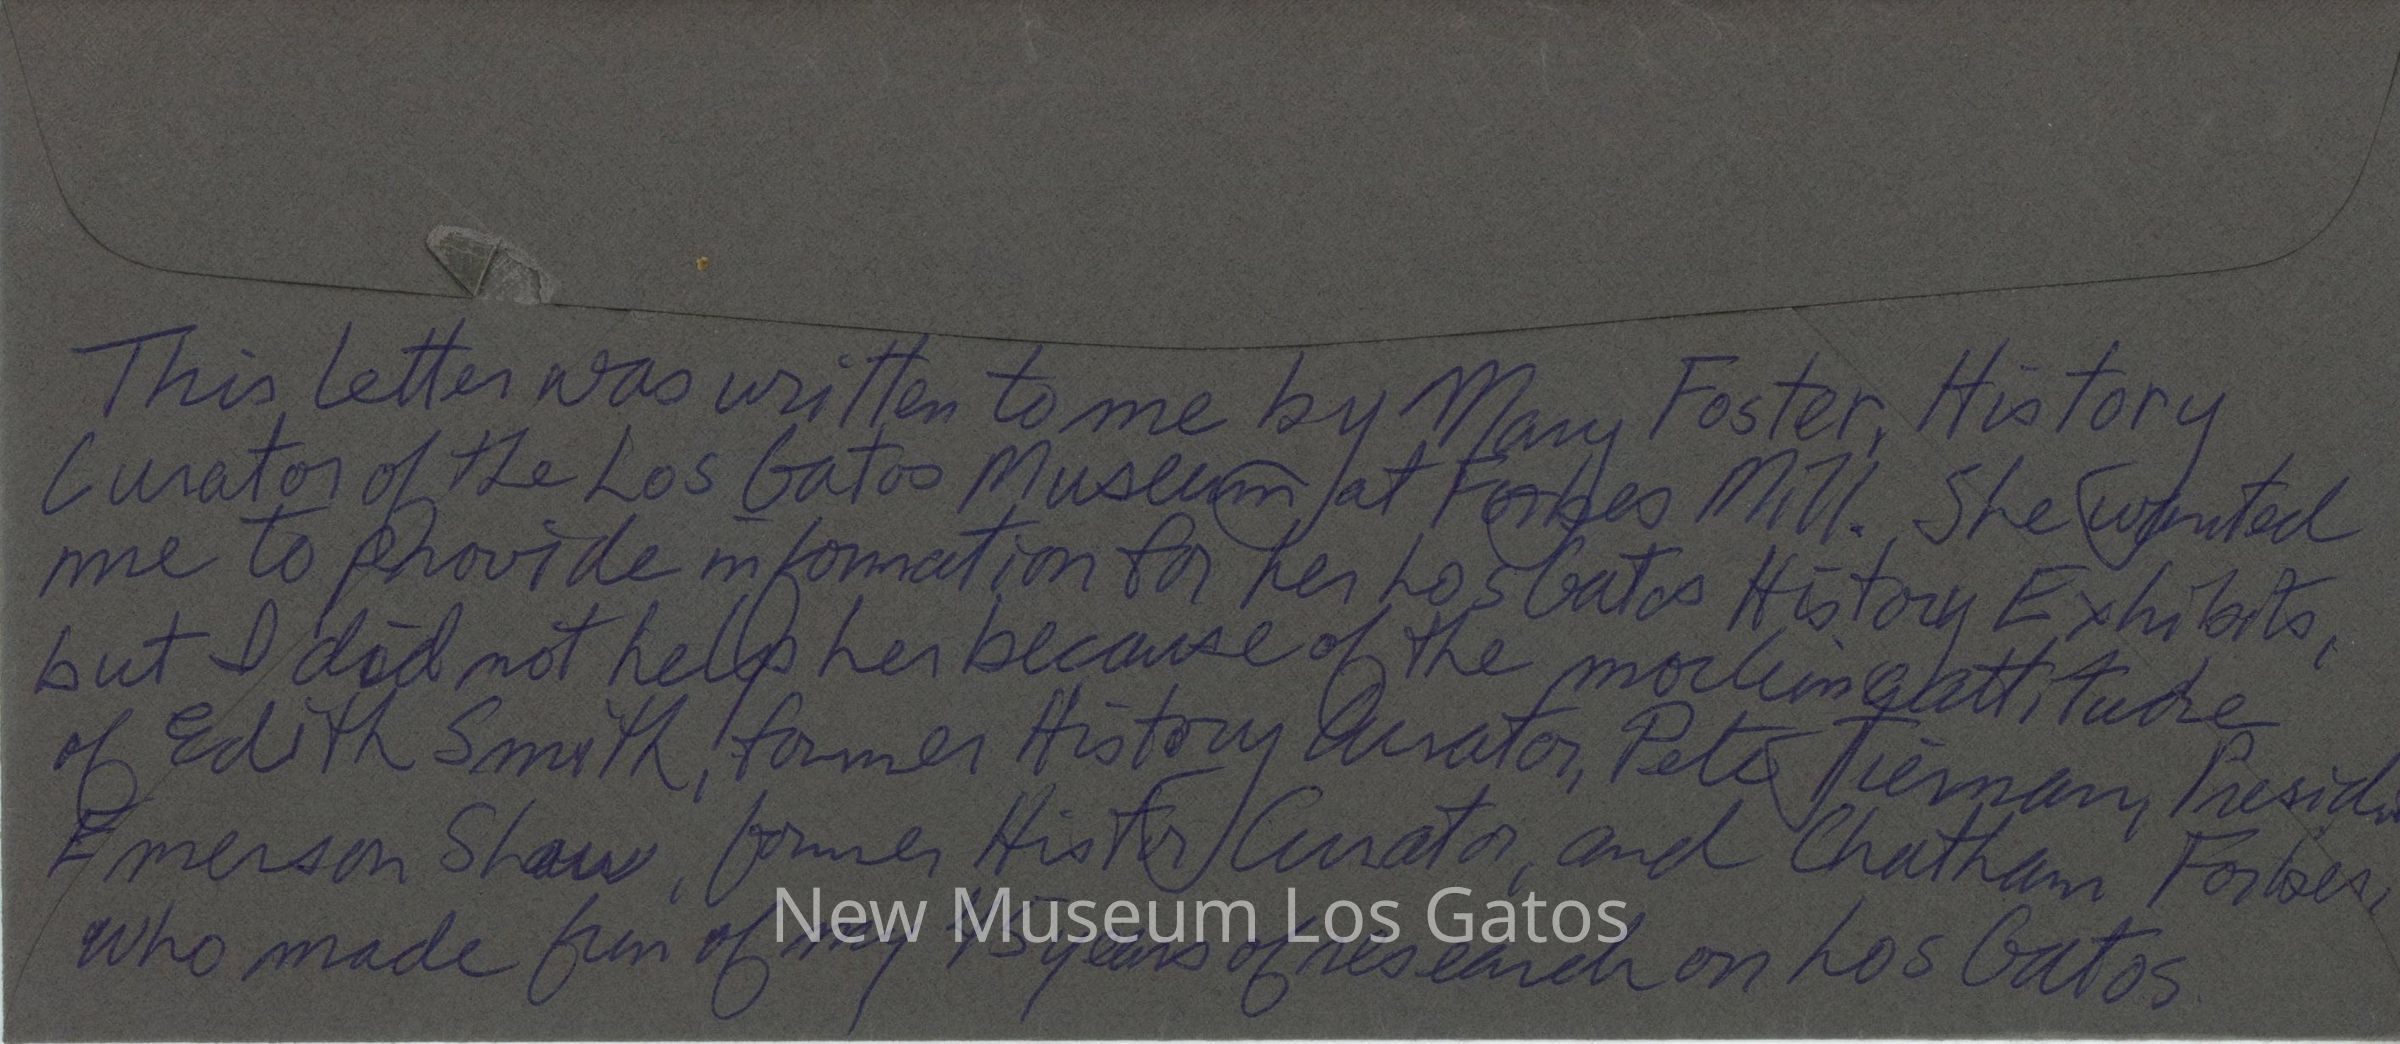 This letter was written to me by Mary Foster, History
Curator of the Los Gatos Museum at Forbes Mill. She wanted
me to provide information for her Los Gatos History Exhibits,
but I did not help her because of the mocking attitude
of Edith Smith, former History Curator, Pete Tiernan,
Emerson Shaw, former Histor Curator, and Chatham Forbes,
who made fun of my years of research on Los Gatos.
New Museum Los Gatos